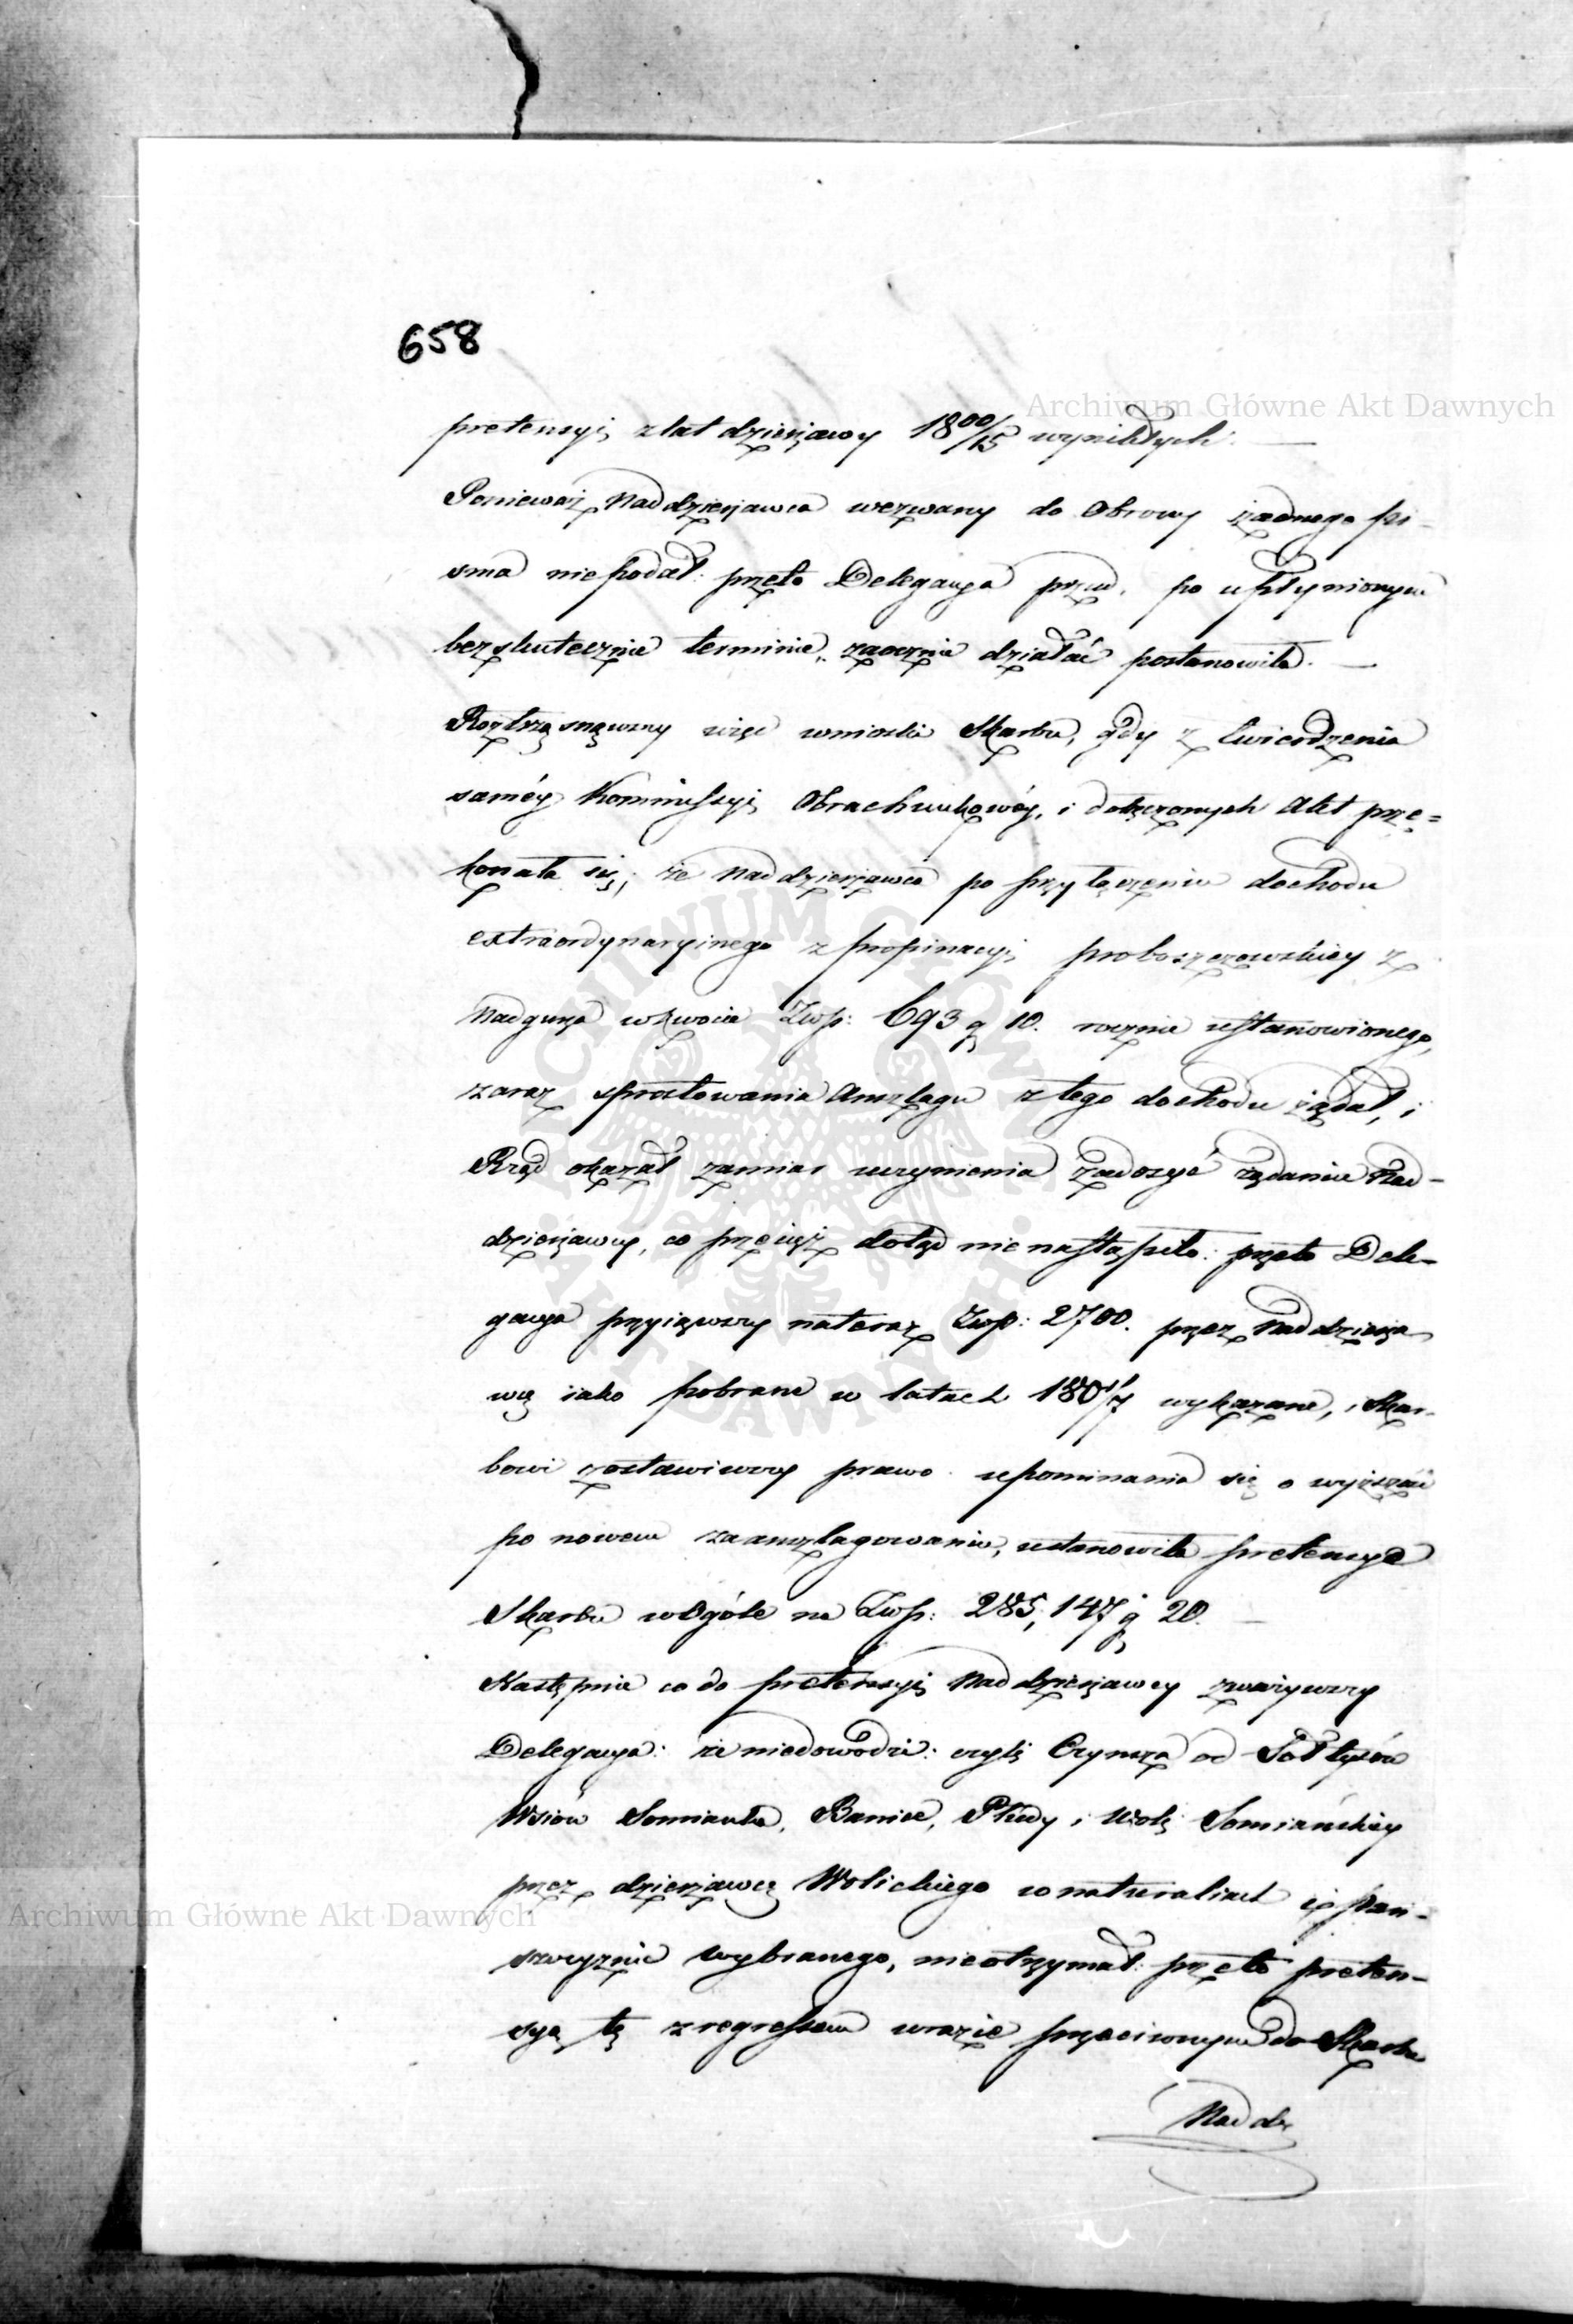 658
Archiwum Główne Akt Dawnych
pretensyi z lat dzierżawy 1800/15 wynikłych. —
Ponieważ Naddzierżawca wezwany do Obrony żadnego pi-
sma niepodał: przeto Delegacya przed. po upłynionym
bezskutecznie terminie, zaocznie działać postanowiła. —
Roztrząsnąwszy więc wnioski Skarbu, gdy z twierdzenia
saméy Kommissyi Obrachunkowéy, i dołączonych Akt prze=
konała się, że Naddzierżawca po przyłączeniu dochodu
extraordynaryinego z propinacyi proboszczowskiey z
Nadgurza w kwocie Złwp: 693 g 10. rocznie ustanowionego,
zaraz sprostowania Anszlagu z tego dochodu żądał, i
Rząd okazał zamiar uczynienia zadosyć żądaniu Nad-
dzierżawcy, co przecież dotąd nie nastąpiło: przeto Dele-
gacya przyiąwszy na teraz Złwp: 2700. przez Naddzierża
wcę iako pobrane w latach 180 /7 wykazane, i Skar-
bowi zostawiwszy prawo upominania się o wyższość
po nowem zaanszlagowaniu, ustanowiła pretensye
Skarbu wogóle na Złwp: 285,147 g 20. —
Następnie co do pretensyi Naddzierżawcy zważywszy
Delegacya: że niedowodzi: czyli Czynszu od Sołtysów
Wsiów Somianka, Banice, Płudy i Woli Somiańskiéy
przez dzierżawcę Wolickiego w naturaliach i pań-
szczyznie wybranego, nieotrzymał: przeto preten-
syą tę z regressem w razie przeciwnym do Skarbu
Naddz
Archiwum Główne Akt Dawnych
ARCHIWUM GŁÓWNE AKT DAWNYCH